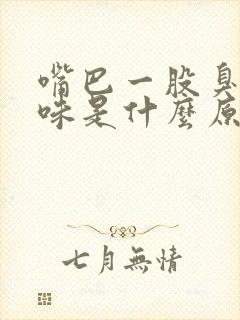 嘴巴一股臭
味是什麼原
七月無情